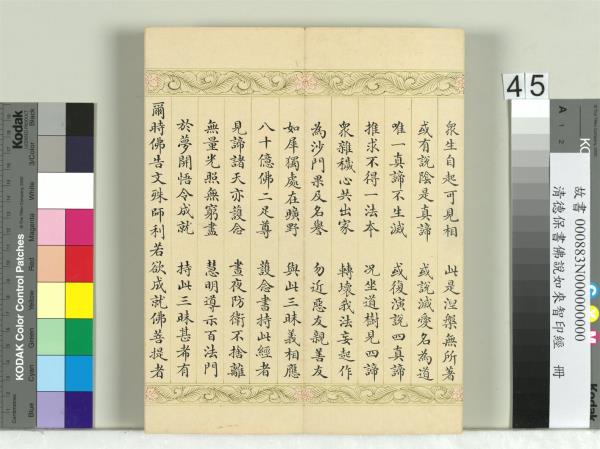 衆生自起可見相　此是涅槃無所著
或有説陰是真諦　或説滅愛名為道
唯一真諦不生滅　或復演説四真諦
推求不得一法本　况坐道樹見四諦
衆雜穢心共出家　轉壞我法妄起作
為沙門果及名譽　勿近惡友親善友
如犀獨處在曠野　與此三昧義相應
八十億佛二足尊　護念書持此經者
見諦諸天亦護念　晝夜防衛不捨離
無量光照無窮盡　慧明導示百法門
於夢開悟令成就　持此三昧甚希有
爾時佛告文殊師利若欲成就佛菩提者
45
故書 000883N000000000
清德保書佛說如來智印經　冊
KODAK Color Control Patches
Kodak
Blue
Cyan
Green
Yellow
Red
Magenta
White
3/Color
Black
A 1 2
C
M